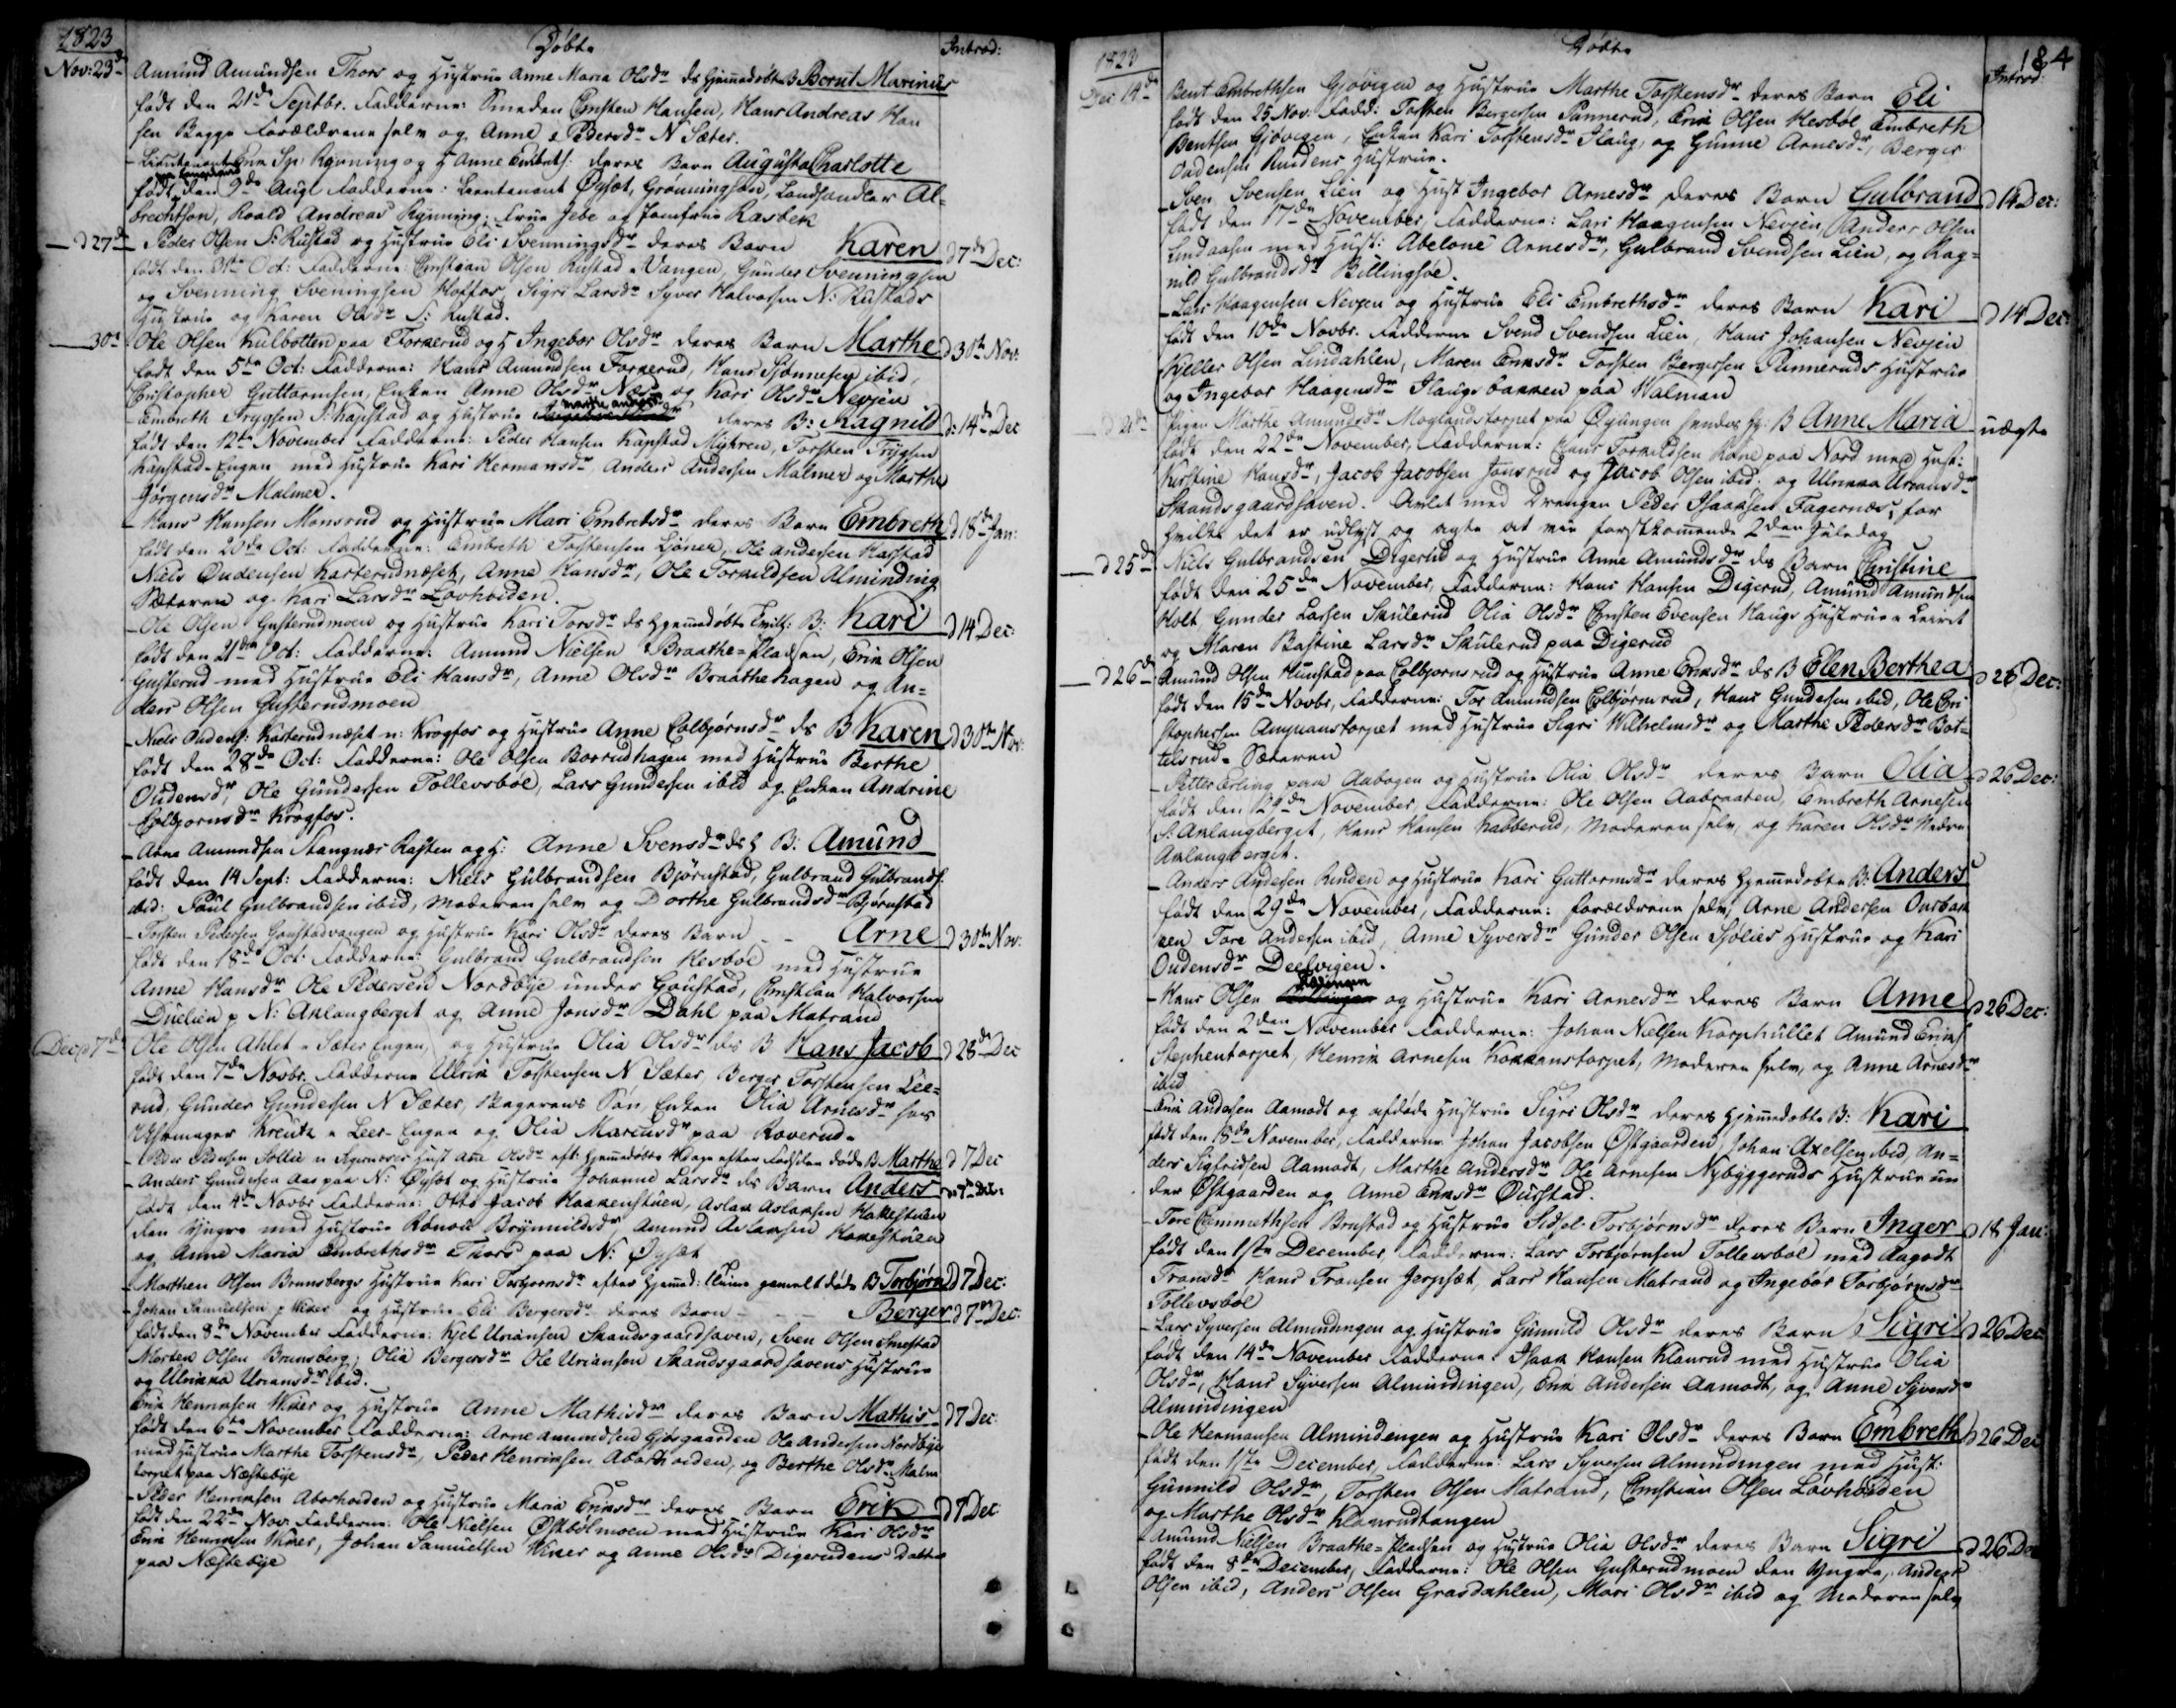 1823
Døbte
Introd:
Nov: 23de Amund Amundsen Thors og Hustrue Anne Maria Olsdr ds Hjemmedøbte B Bernt Marinius
født den 21de Septbr. Fadderne: Smeden Christen Hansen, Hans Andreas Han
sen Begge Forældrene selv og Anne Pedersdr N Sæter.
- Lieutenant Rynning og H Anne Embrets: deres Barn Augusta Charlotte
født den 9de Aug: Fadderne: Lieutenant Øyset, Grønningsæn, Landhandler Al-
brechtson, Roald Andreas Rynning; Frue Jebe og Jomfrue Rasbek
- d 27de Peder Olsen S: Rustad og Hustrue Eli Svenningsdr deres Barn Karen d 7de Dec:
født den 31te Oct: Fadderne: Christian Olsen Rustad-Vangen, Gunder Svenningsen
og Svenning Sveningsen Hoffos, Sigri Larsdr Syver Halvorsen N: Rustads
Hustrue og Karen Olsdr S: Rustad.
- 30te Ole Olsen Kulbotten paa Forkerud og H Ingebor Olsdr deres Barn Marthe d 30te Nov:
født den 5te Oct: Fadderne: Hans Amundsen Forkerud, Hans Tjønnesen ibid,
Christopher Guttormsen, Enken Anne Olsdr Næss og Kari Olsdr Nevjen
- Embreth Trygsen S: Kapstad og Hustrue Marthe Andersdr deres B: Ragnild d: 14de Dec
født den 12te November Fadderne: Peder Hansen Kapstad Myhren, Torsten Trygsen
Kapstad-Engen med Hustrue Kari Hermansdr, Anders Andersen Malmer og Marthe
Jørgensdr Malmer.
- Hans Hansen Monsrud og Hustrue Mari Embretsdr deres Barn Embreth d 18de Jan:
født den 20de Oct: Fadderne: Embreth Torstensen Ljøner, Ole Andersen Harstad
Niels Oudensen Kasterudnæset, Anne Hansdr, Ole Torkildsen Alminding
Sæteren og Kari Larsdr Lovhoiden.
- Ole Olsen Gusterudmoen og Hustrue Kari Torsdr ds Hjemmedøbte B: Kari d 14 Dec:
født den 21de Oct: Fadderne: Amund Nielsen Braathe-Pladsen, Erik Olsen
Gusterud med Hustrue Eli Hansdr, Anne Olsdr Braathehagen og An-
ders Olsen Gusterudmoen
- Niels Oudens: Kasterudnæset n: Krogfos og Hustrue Anne Colbjørnsdr ds B Karen d 30te Nov:
født den 28de Oct: Fadderne: Ole Olsen Borrudhagen med Hustrue Berthe
Oudensdr, Ole Gundersen Tollevsbøl, Lars Gundersen ibid og Enken Andrine
Colbjørnsdr Krogfos.
- Arne Amundsen Stangnes Rasten og H: Anne Svensdr ds B: Amund
født den 14 Sept: Fadderne: Niels Gulbrandsen Bjørnstad, Gulbrand Gulbrands:
ibid: Poul Gulbrandsen ibid, Moderen selv og Dorthe Gulbrandsdr Bjørnstad
- Torsten Pedersen Goustadvangen og Hustrue Kari Olsdr deres Barn - - Arne d 30te Nov:
født den 18de Oct: Fadderne: Gulbrand Gulbrandsen Hesbøl med Hustrue
Anne Hansdr Ole Pedersen Nordbye under Goustad, Christian Halvorsen
Duelien p N: Aklangberget og Anne Jonsdr Dahl paa Matrand
Dec: d 7de Ole Olsen Ahlet - Sæter Engen og Hustrue Olia Olsdr ds B Hans Jacob d 28de Dec
født den 7de Novbr. Fadderne Ulrik Torstensen N Sæter, Berger Torstensen Lee-
rud, Gunder Gundersen N Sæter, Bagerens Søn, Enken Olia Arnesdr hos
Uhrmager Kreutz n Leer-Engen og Olia Mariusdr paa Roverud.
- Peder Pedersen Sollie n Hust Olsdr eft: Hjemmedøbte døde B Marthe d 7 Dec
- Anders Gundersen Aas paa N: Øyset og Hustrue Johanne Larsdr ds Barn Anders d 7de Dec:
født den 4de Novbr Fadderne: Otto Jacob Haakenstuen, Aslak Aslaksen Hakestuen
den Yngre med Hustrue Rønou Brynnildsdr Amund Aslaksen Hakestuen
og Anne Maria Embrethsdr Thors paa N: Øyset
- Morthen Olsen Brunsbergs Hustrue Kari Torbjørnsdr efter Hjemmed: Uuge gamelt døde B Torbjørn d 7 Dec:
- Johan Samuelsen p Wiker og Hustrue Eli Bergersdr deres Barn - - - Berger d 7de Dec:
født den 8de November Fadderne: Kjel Uriansen Skandsgaardhaven, Sven Olsen Smestad
Morten Olsen Brunsberg; Olia Bergersdr Ole Uriansen Skandsgaardhavens Hustrue
og Ulrikka Uriansdr ibid.
Erik Henriksen Wiker og Hustrue Anne Mathisdr deres Barn Mathis d 7 Dec:
født den 6te November Fadderne: Arne Amundsen Gjøsgaarden Ole Andersen Nordbye
med Hustrue Marthe Torstensdr, Peder Henriksen Aborhoiden, og Berthe Olsdr Malm
torpet paa Næstebye
- Peder Henriksen Aborhoiden og Hustrue Maria Eriksdr deres Barn Erik d 7 Dec
født den 22de Nov. Fadderne: Ole Nielsen Østbølmoen med Hustrue Kari Olsdr
Erik Henriksen Wiker, Johan Samuelsen Wiker og Anne Olsdr Digerudens Datter
paa Næstebye
1823
Døbte
184
Introd:
Dec 14de Bent Embrethsen Gjøvigen og Hustrue Marthe Torstensdr deres Barn Eli
født den 25 Nov: Fadd: Torsten Bergersen Pannerud, Erik Olsen Hesbøl Embreth
Bentsen Gjøvigen, Enken Kari Torstensdr Haug, og Gunne Arnesdr, Berger
Oudensen Rudens Hustrue.
- Sven Svensen Lien og Hust Ingebor Arnesdr deres Barn Gulbrand d 14 Dec:
født den 17de November, Fadderne: Lars Haagensen Nevjen, Anders Olsen
Lindaasen med Hust: Abelone Arnesdr, Gulbrand Svendsen Lien, og Rag-
nild Gulbrandsdr Billingsøe.
- Lars Haagensen Nevjen og Hustrue Eli Embrethsdr deres Barn Kari d 14 Dec:
født den 10de Novbr. Fadderne Svend Svendsen Lien, Hans Johansen Nevjen
Kjeller Olsen Lindahlen, Maren Eriksdr Torsten Bergersen Pannerruds Hustrue
og Ingebor Haagensdr Haugsbakken paa Walman
- d 21de Pigen Marthe Amundsdr Moglandstorpet paa Øyungen hendes B Anne Maria uægte
født den 22de November, Fadderne: Hans Torkildsen Rone paa Nord med Hust:
Kirstine Hansdr, Jacob Jacobsen Jonsrud og Jacob Olsen ibid. og Ulrikka Uriansdr
Skandsgaardhaven. Avlet med Drengen Peder Isaaksen Fagernæs, for
hvilke det er udlyst og agte at vie førstkommende 2den Juledag
- d 25de Niels Gulbrandsen Digerud og Hustrue Anne Amundsdr ds Barn Christine
født den 25de November, Fadderne: Hans Hansen Digerud, Amund Amundsen
Holt, Gunder Larsen Skulerud Olia Olsdr Christen Evensen Haugs Hustrue n Leiret
og Maren Bastine Larsdr Skulerud paa Digerud
- d 26de Amund Olsen Hunstad paa Colbjørnsrud og Hustrue Anne Eriksdr ds B Elen Berthea d 26 Dec:
født den 15de Novbr, Fadderne: Tor Amundsen Colbjørnsrud, Hans Gundersen ibid, Ole Chri
stophersen Ampianstorpet med Hustrue Sigri Wilhelmsdr og Marthe Pedersdr Bot-
telsrud-Sæteren
- Petter Erling paa Aabogen og Hustrue Olia Olsdr deres Barn Olia d 26 Dec:
født den 29de November, Fadderne: Ole Olsen Aabraaten, Embreth Arnesen
S: Aklangberget, Hans Hansen Kabberud, Moderen selv, og Karen Olsdr Nedre
Aklangberget.
- Anders Andersen Rinden og Hustrue Kari Guttormsdr deres Hjemmedøbte B: Anders
født den 29de November, Fadderne: Forældrene selv, Arne Andersen Ourbak
ken Tore Andersen ibid, Anne Syversdr Gunder Olsen Sjølies Hustrue og Kari
Oudensdr Deelvigen.
- Hans Olsen og Hustrue Kari Arnesdr deres Barn Anne d 26 Dec:
født den 2den November Fadderne: Johan Nielsen Korphullet Amund Eriks:
Stephentorpet, Henrik Arnesen Kokkenstorpet, Moderen selv, og Anne Arnesdr
ibid
- Erik Andersen Aamodt og afdøde Hustrue Sigri Olsdr deres Hjemmedøbte B: Kari
født den 18de November, Fadderne Johan Jacobsen Østgaarden, Johan Axelsen ibid, An-
ders Sigfridsen Aamodt, Marthe Andersdr Ole Arnesen Nybyggeruds Hustrue un
der Østgaarden og Anne Eriksdr Ourstad.
- Tore Clemmethsen Brustad og Hustrue Sidsel Torbjørnsdr deres Barn Inger d 18 Jan:
født den 1ste December Fadderne: Lars Torbjørnsen Tollevsbøl med Aagodt
Fransdr Hans Fransen Jerpset, Lars Hansen Matrand og Ingebor Torbjørnsdr
Tollevsbøl
- Lars Syversen Almindingen og Hustrue Gunnild Olsdr deres Barn Sigri d 26 Dec
født den 14de November Fadderne: Isaak Hansen Klanrud med Hustrue Olia
Olsdr, Hans Syversen Almindingen, Erik Andersen Aamodt, og Anne Syversdr
Almindingen
- Ole Hermansen Almindingen og Hustrue Kari Olsdr deres Barn Embreth d 26 Dec
født den 1ste December, Fadderne: Lars Syversen Almindingen med Hust:
Gunnild Olsdr, Torsten Olsen Matrand, Christian Olsen Løvhøiden
og Marthe Olsdr Klanrudtangen
- Amund Nielsen Braathe-Pladsen og Hustrue Olia Olsdr deres Barn Sigri d 26 Dec
født den 8de December, Fadderne: Ole Olsen Gusterudmoen den Yngre, Anders
Olsen ibid, Anders Olsen Grasdahlen, Mari Olsdr ibid og Moderen selv